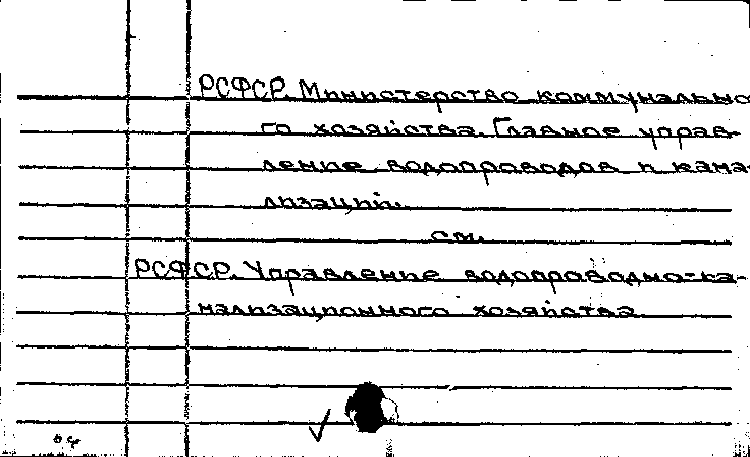 РСФСР. Министерство коммунально
го хозяйства. Главное управ-
ление водопроводов и кана-
лизаций.
см.
РСФСР. Управление водопроводно-ка-
нализационного хозяйства.